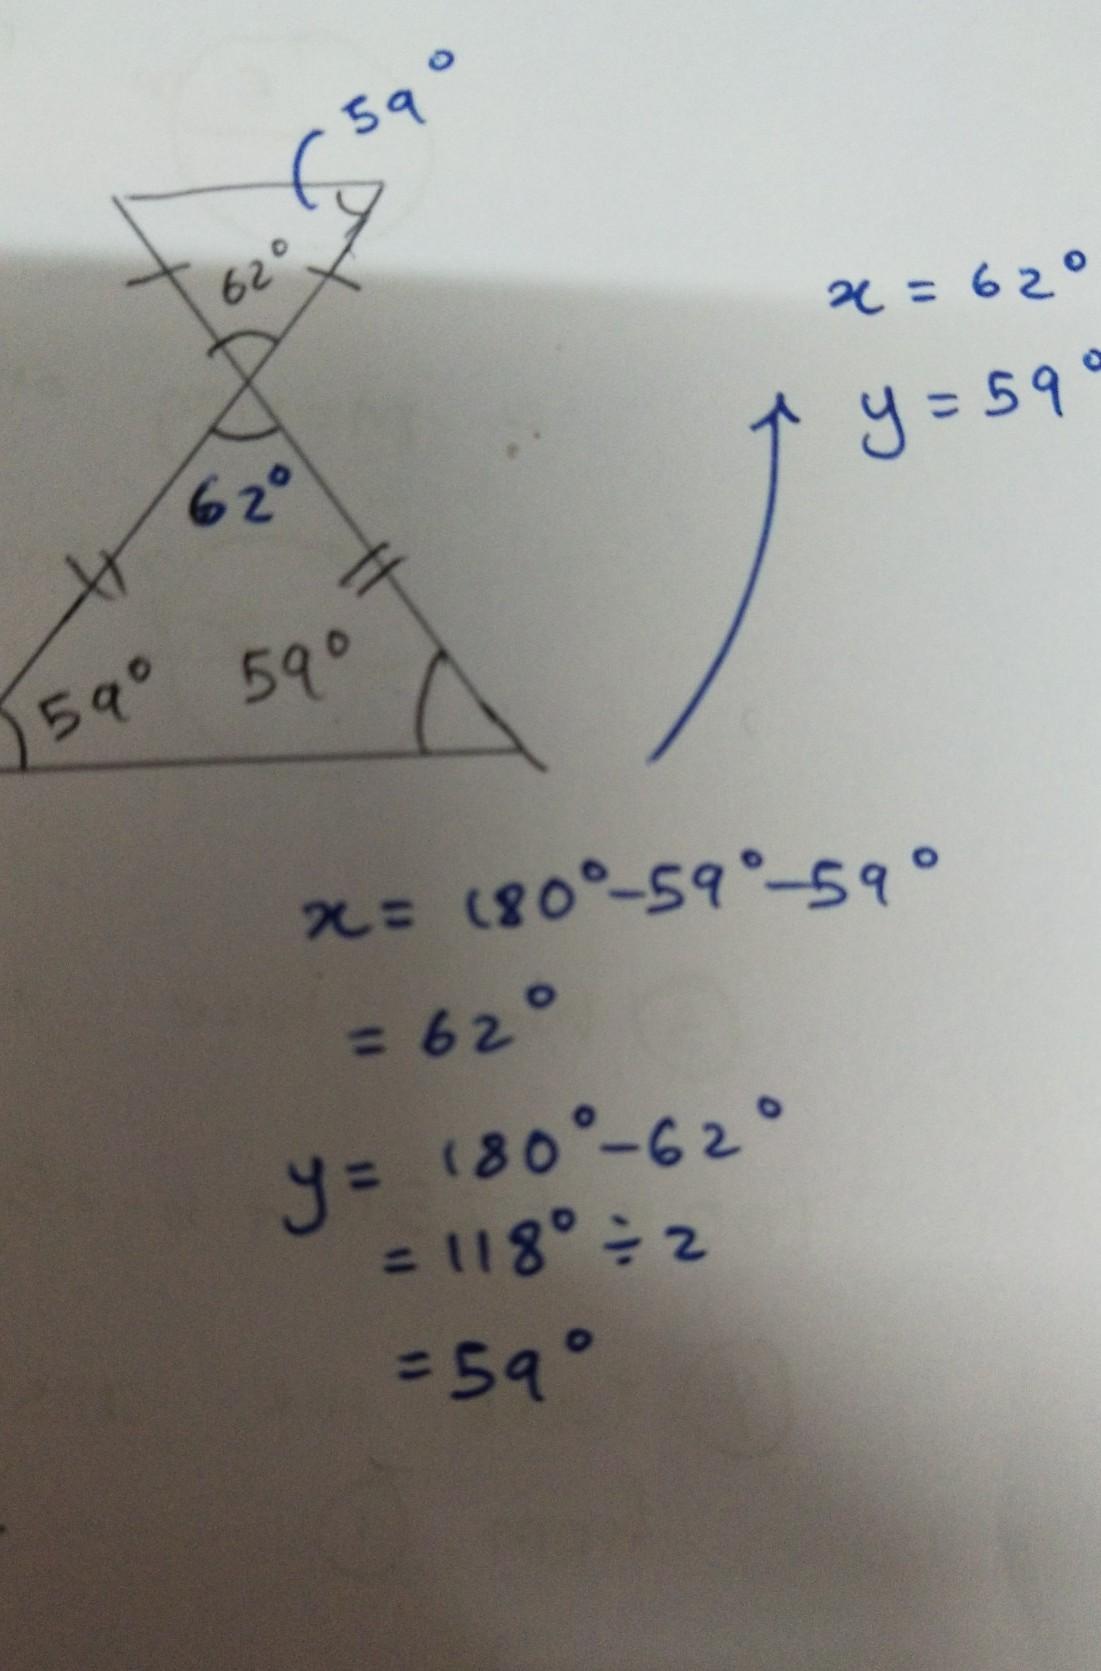 59°
y
62°
x = 62°
y = 59°
62°
59° 59°
x = 180° - 59° - 59°
= 62°
y = 180° - 62°
= 118° ÷ 2
= 59°